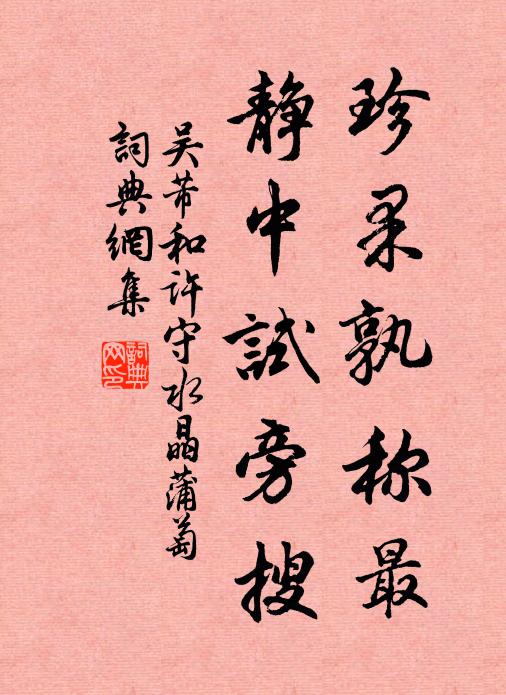 珍果孰称最
静中試旁搜
吴芾和許守水晶蒲萄
詞典網集
詞典网印